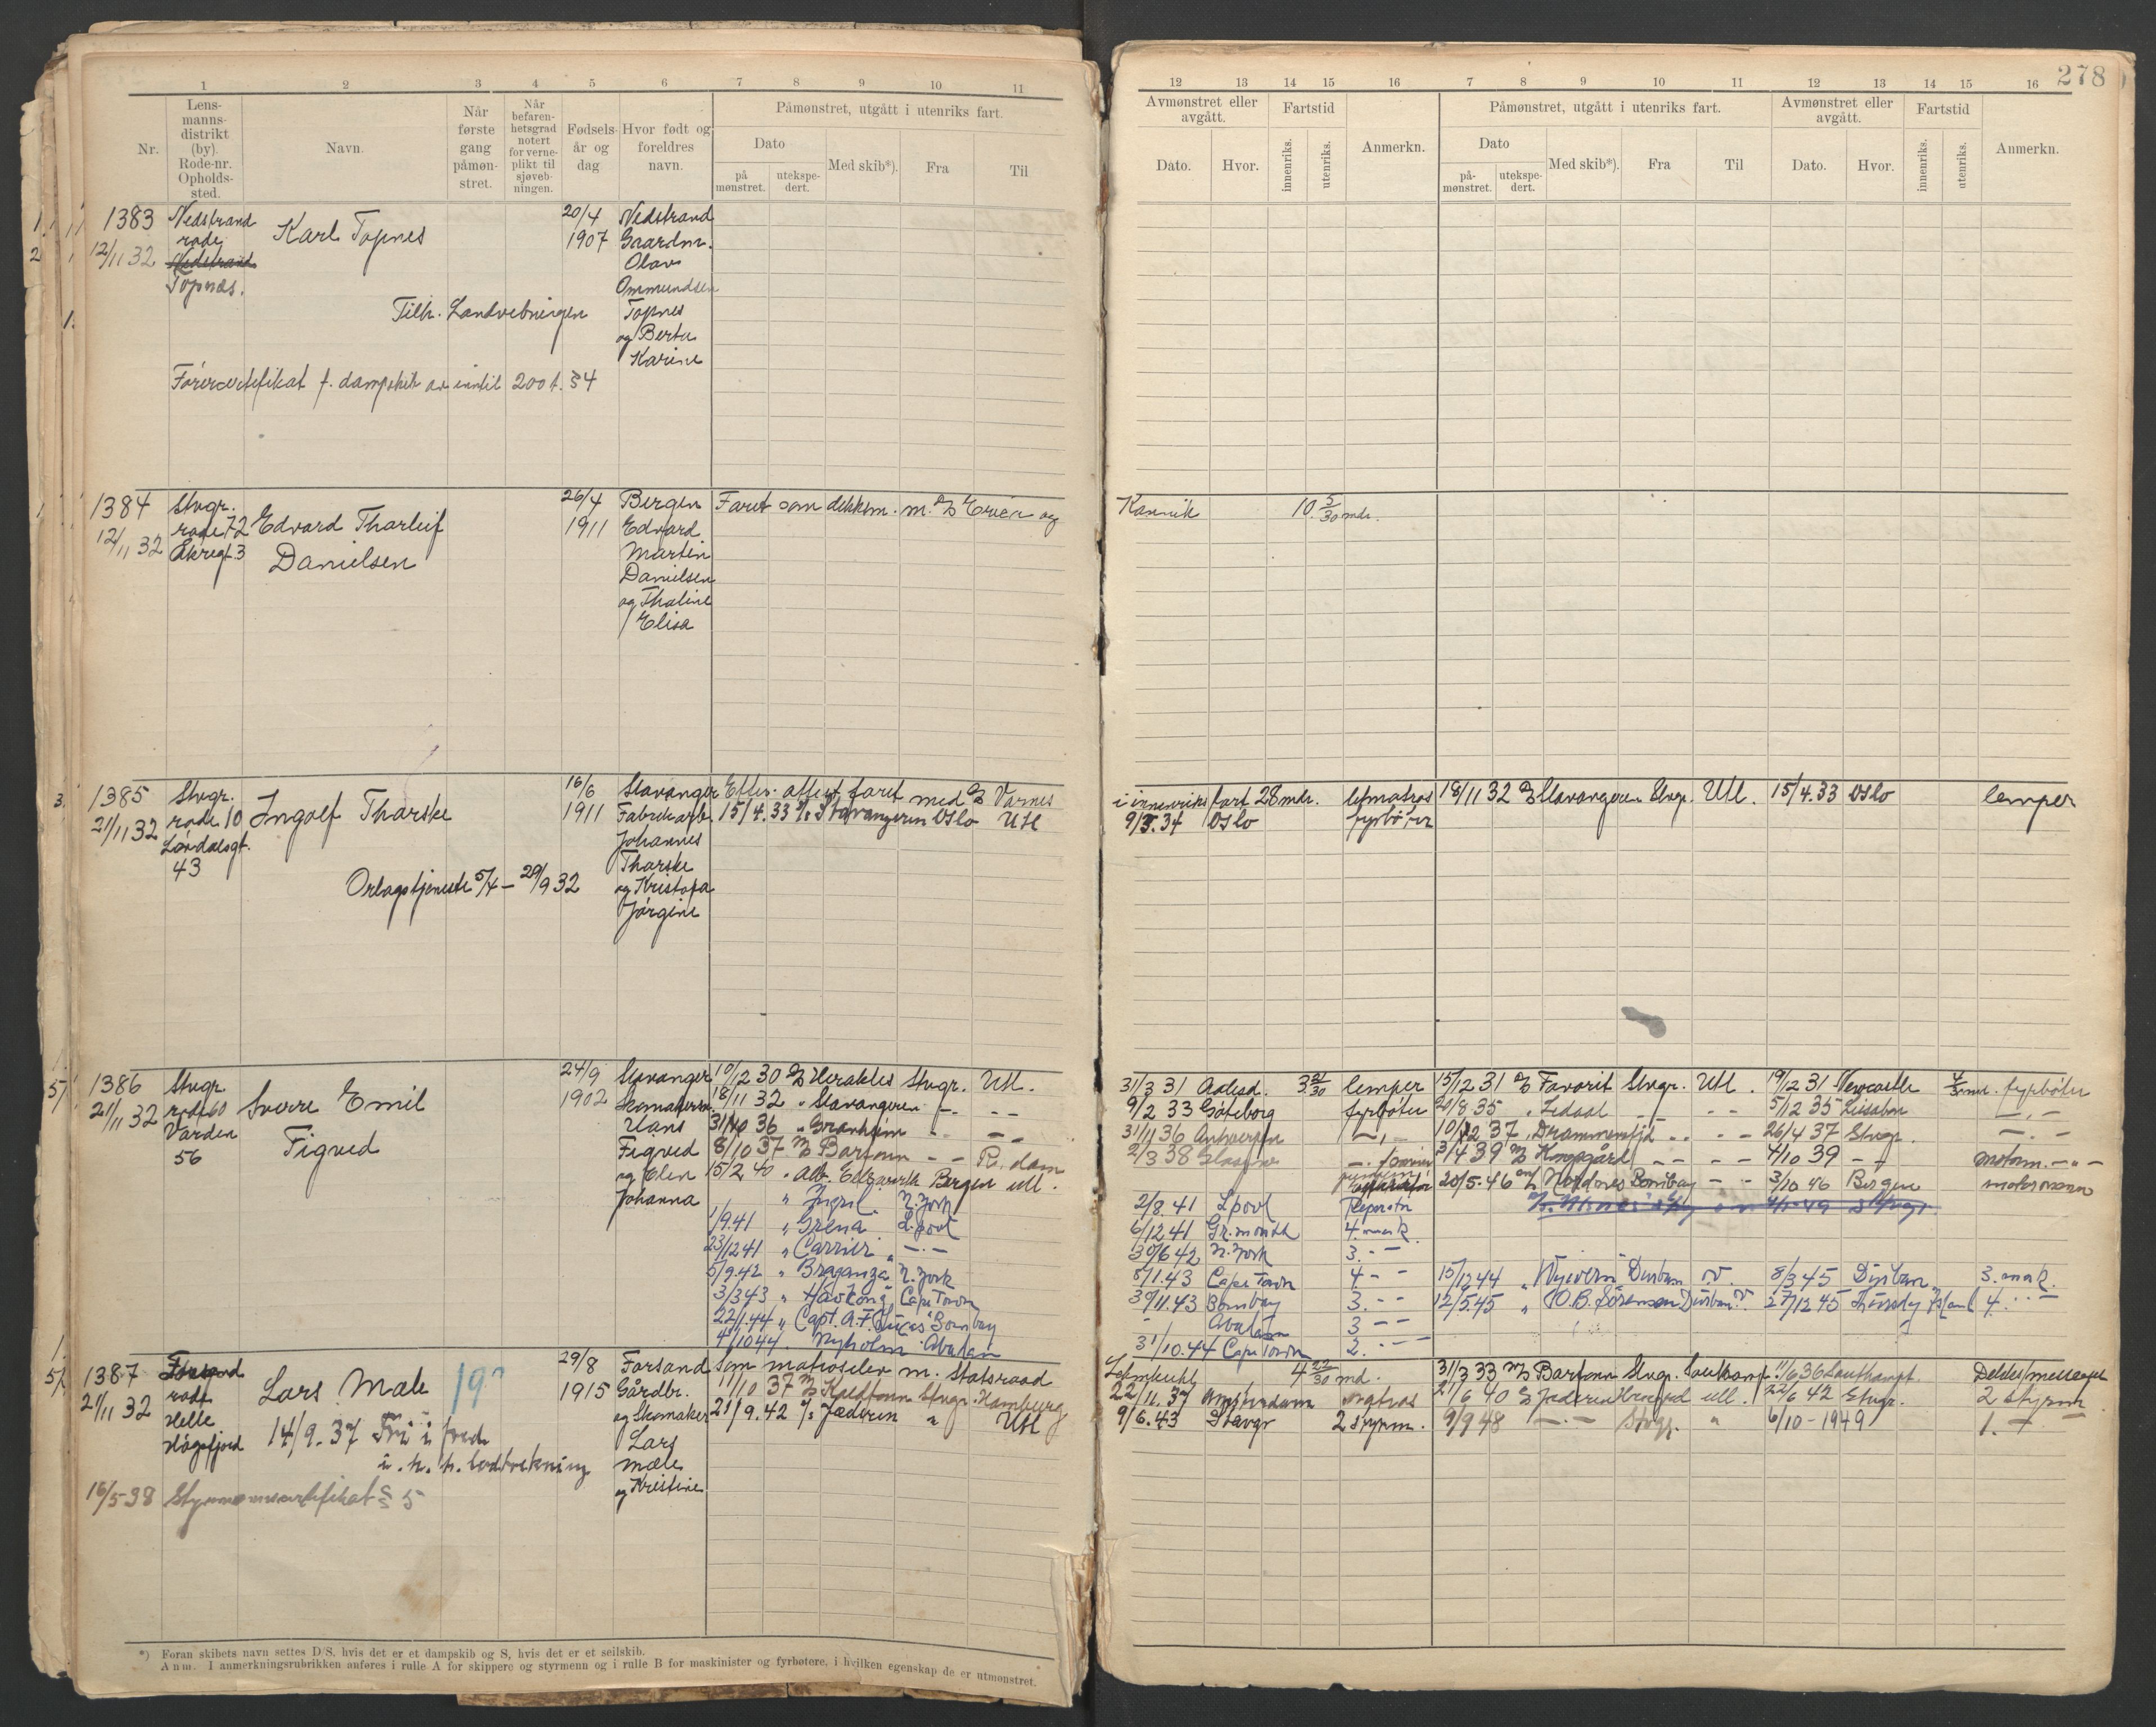 278
1 2 3 4 5 6 7 8 9 10 11
Nr.
Lens-
manns-
distrikt
(by).
Rode-nr.
Opholds-
sted.
Navn.
Når
første
gang
påmøn-
stret.
Når
befaren-
hetsgrad
notert
for verne-
plikt til
sjøveb-
ningen.
Fødsels-
år og
dag
Hvor født og
foreldres
navn.
Påmønstret, utgått i utenriks fart.
Dato
på
mønstret.
utekspe-
dert.
Med skib*).
Fra
Til
12 13 14 15 16 7 8 9 10 11 12 13 14 15 16
Avmønstret eller
avgått.
Dato.
Hvor.
Fartstid
innenriks.
utenriks.
Anmerkn.
Påmønstret, utgått i utenriks fart.
Dato
på-
mønstret.
utekspe-
dert.
Med skib*).
Fra
Til
Avmønstret eller
avgått.
Dato.
Hvor.
Fartstid
innenriks.
utenriks.
Anmerkn.
1383
12/11 32
Nedstrand
rode
Nedstrand
Topnæs.
Karl Topnes
20/4
1907
Nedstrand
Gaardm.
Olav
Ommundsen
Topnes
og Berta
Karine
Tilh. Landvebningen
Førercertifikat f. dampskib av inntil 200 t. 34
1384
12/11 32
Stvgr.
rode 72
Akregt. 3
Edvard Tharleif
Danielsen
26/4
1911
Bergen
Edvard
Martin
Danielsen
og Thaline
Elisa
Faret som dekksm. m. og
Kannik 10 5/30 mdr.
1385
21/11 32
Stvgr.
rode 10
43
Ingolf Tharske
16/6
1911
Stavanger
Fabrikarb.
Johannes
Tharske
og Kristofa
Jørgine
Orlogstjeneste 5/4 – 29/9 32
Efter attest faret med D/S Varnes
15/4.33 Stavangeren Oslo Utl
i innenriks fart 28 mdr. letmatros 18/11 32 D/S Stavangeren Stvgr. Utl. 15/4.33 Oslo lemper
9/3.34 Oslo fyrbøter
1386
21/11 32
Stvgr.
rode 60
Varden
56
Sverre Emil
Figved
24/9
1902
Stavanger
Skomakersv.
Hans
Figved
og Elen
Johanna
10/12 30 D/S Herakles Stvgr. Utl.
18/11 32 " Stavangeren – " – – –
31/10 36 " Granheim – – – –
8/10 37 M/S Bartonn – – R.dam
15/2 40 " Bergen utl.
" N. York
1/9.41 " Grena L.pool
23/12 41 " Carrier " – " –
5/9.42 " Braganza N. York
3/3 43 " Havkong Cape Town
22/1.44 " Capt. A. F. Lucas Bombay
4/10 44 " Nyholm Abadan
31/3 31 Aalesd. 3 21/30 lemper 15/12 31 D/S Favorit Stvgr. Utl. 19/12 31 Newcastle fyrbøter
9/2 33 Göteborg fyrbøter 20/8 35 " Ledaal – " – – – 5/12 35 Lissabon – " –
31/11 36 Antwerpen – " – 10/12 37 " Drammensfjd – – – – 26/4 37 Stvgr. – " –
2/3 38 Glasgow 3/4 39 M/S Kongsgård – – – – 4/10 39 – " – motorm. – " –
20/5-46 Nordnes Bombay – – 3/10 46 Bergen motormann
2/8.41 Lpool Reperatør
6/12.41 4. mask.
30/6 42 N. York 3. – –
8/1.43 Cape Town 4 – – 15/12 44 " Wyvern Durban 8/3 45 Durban 3. mask.
30/11.43 Bombay 3. – – 12/5.45 " W. B. Sørensen Durban 27/12 45 4. – –
– Abadan 3 – –
31/10.44 Cape Town 2. – –
1387
21/11 32
Forsand
rode
Helle
Høgsfjord
Lars Mæle
29/8
1915
Forsand
Gårdbr.
og Skomaker
Lars
Mæle
og Kristine
14/9.37 Fri i fred
i. h. h. loddtrekning
16/5-38 Styrmannscertifikat § 5
Som matroselev m. Statsraad
11/10 37 M/S Stvgr. Hamburg
21/9.42 Jæderen " Utl
Lehmkuhl 4 22/30 md. 31/3 33 M/S Bartonn Stvgr. Southampt. 11/6 36 Southampt.
22/11.37 Amsterdam 21/6 40 D/S Jæderen utl. 22/6 42 Stvgr. 2 styrm
9/6.43 Stavgr 2 styrm. 9/9 48 – " – Stvgr. " 6/10 – 1949 1. – " –
*) Foran skibets navn settes D/S, hvis det er et dampskib og S, hvis det er et seilskib.
Anm. I anmerkningsrubrikken anføres i rulle A for skippere og styrmenn og i rulle B for maskinister og fyrbøtere, i hvilken egenskap de er utmønstret.